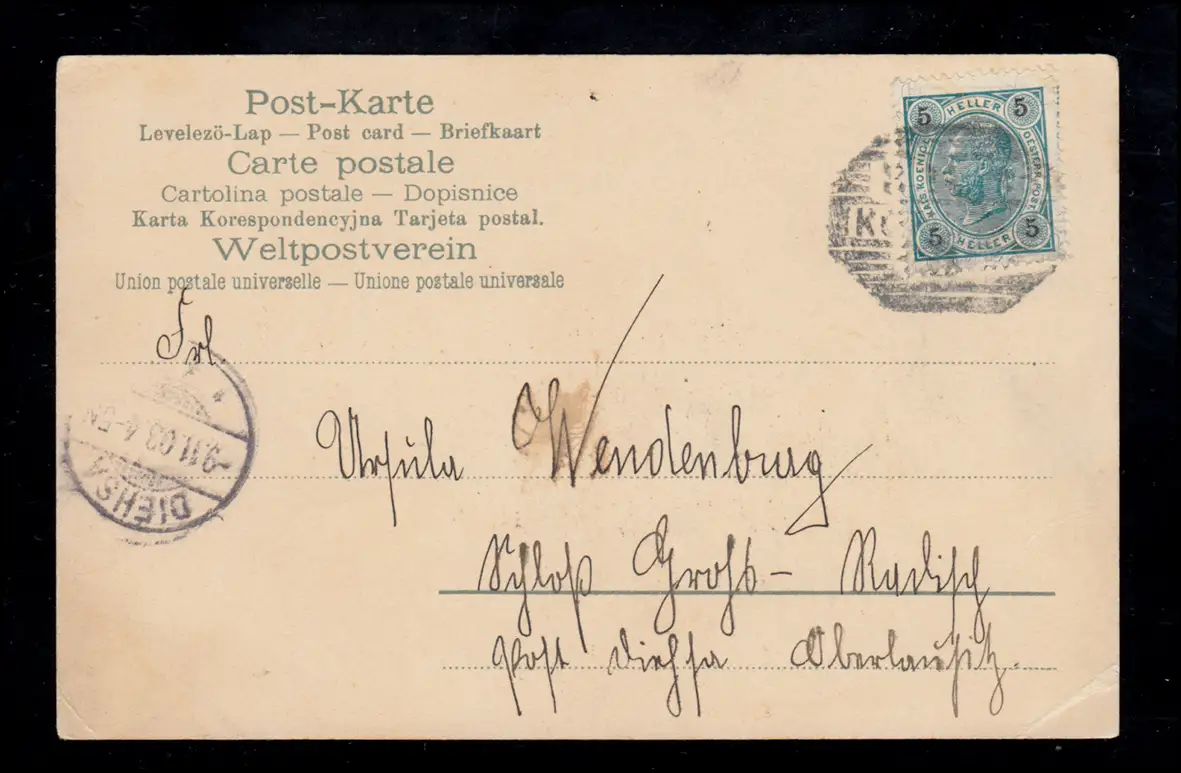 Post-Karte
Levelezö-Lap — Post card — Briefkaart
Carte postale
Cartolina postale — Dopisnice
Karta Korespondencyjna Tarjeta postal.
Weltpostverein
Union postale universelle — Unione postale universale
5 HELLER 5
KAIS. KOENIGL. OESTERR. POST
5 HELLER 5
Frl.
Ursula Wendenburg
Schloß Groß- Radisch
Post Diehsa Oberlausitz.
-9.11.03. 4-5N
DIEHSA